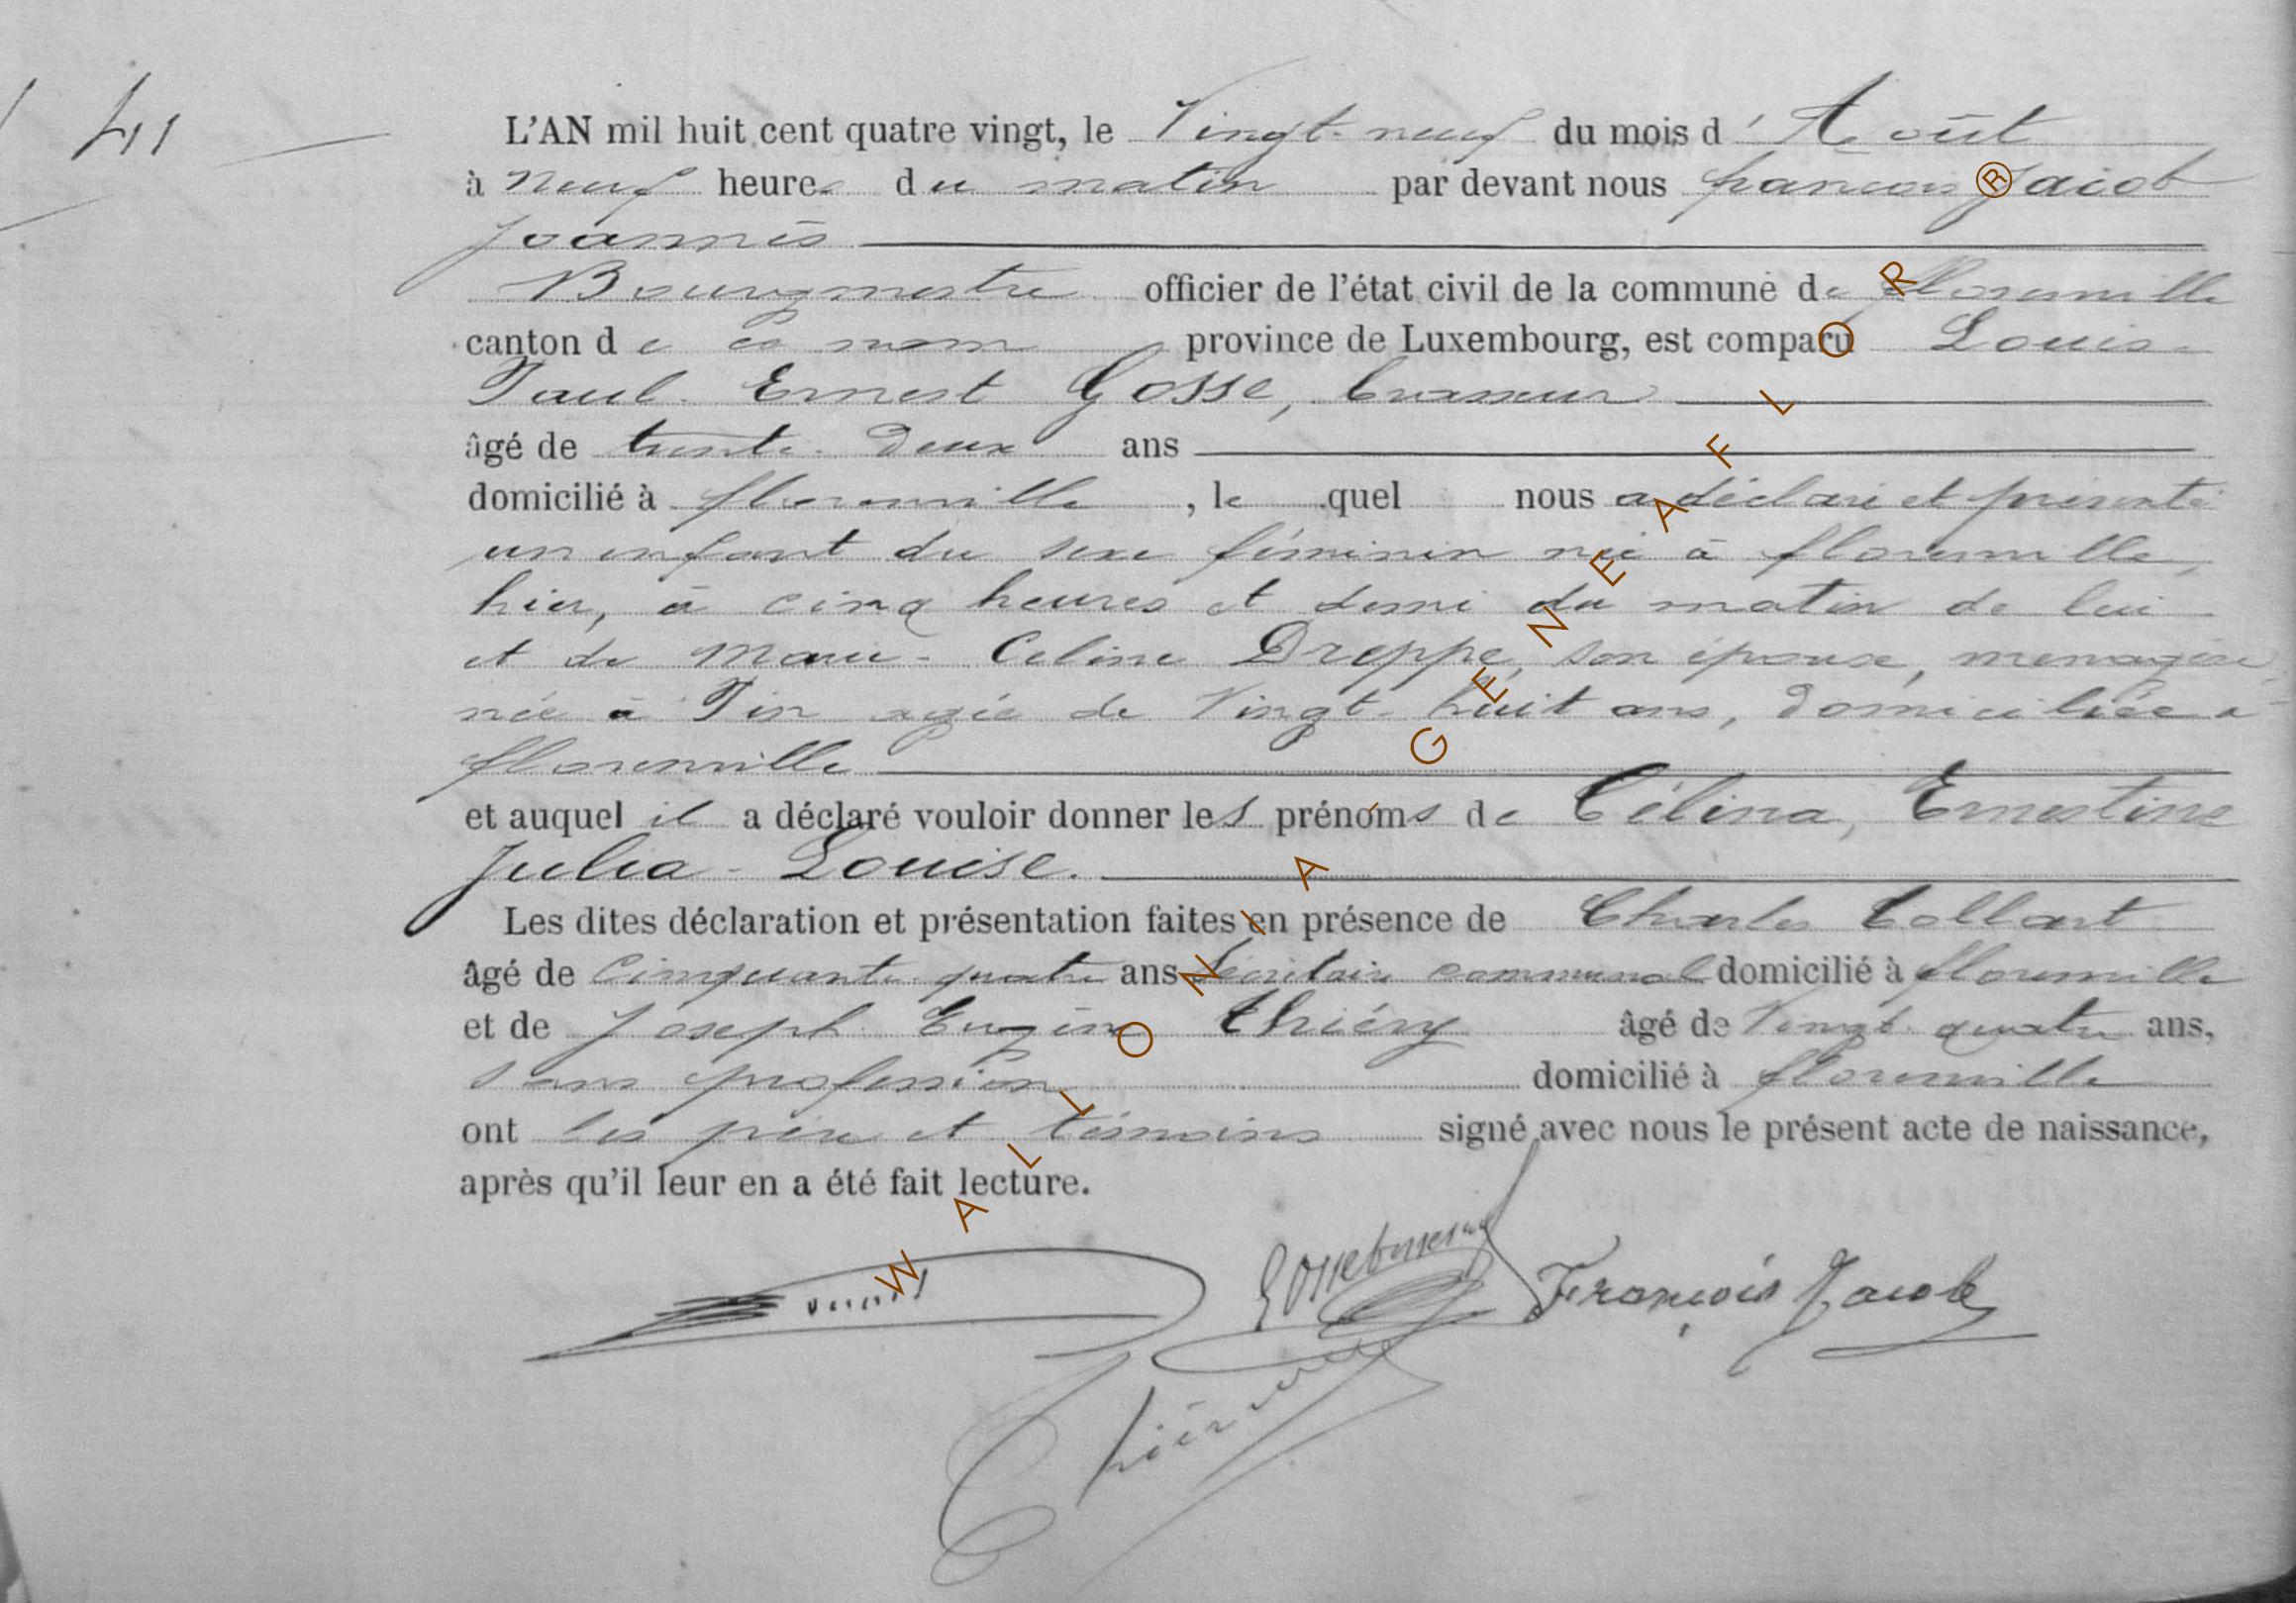 41
L'AN mil huit cent quatre vingt, le Vingt-neuf du mois d'Août
à neuf heures du matin par devant nous françois Jacob
Joannès
Bourgmestre officier de l'état civil de la commune de florenville
canton de ce nom province de Luxembourg, est comparu Louis-
Paul-Ernest Gosse, brasseur
âgé de trente-deux ans
domicilié à florenville, lequel nous a déclaré et présenté
un enfant du sexe féminin né à florenville,
hier, à cinq heures et demi du matin de lui
et de Marie-Celine Dreppe, son épouse, menagère
née à Pin agée de Vingt-huit ans, domiciliée à
florenville
et auquel il a déclaré vouloir donner les prénoms de Célina, Ernestine
Julia-Louise.
Les dites déclaration et présentation faites en présence de Charles Collart
âgé de Cinquante-quatre ans secrétaire communal domicilié à florenville
et de Joseph-Eugène Thiéry âgé de Vingt-quatre ans,
sans profession domicilié à florenville
ont les père et témoins signé avec nous le présent acte de naissance,
après qu'il leur en a été fait lecture.
François Jacob
Thiéry
WALLONIA - GENEAFLOR ®